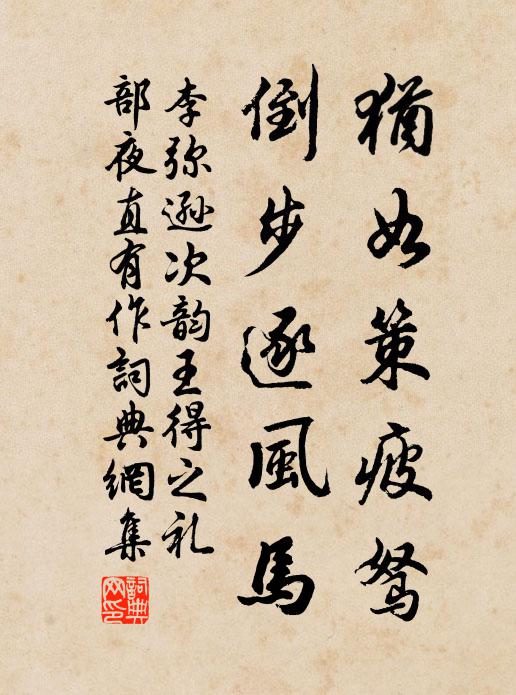 猶如策疲駑
倒步逐風馬
李弥遜次韵王得之礼
部夜直有作詞典網集
詞典網印